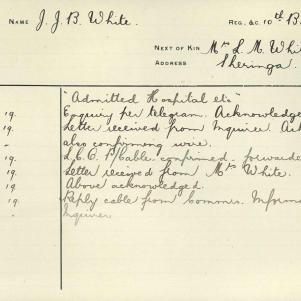 NAME J. J. B. White. REG. &C. 10th B
NEXT OF KIN Mrs L. M. Whi
ADDRESS Sheringa.
"Admitted Hospital etc"
19. Enquiry per telegram. Acknowledge
19. Letter received from Inquirer. Ack
also confirming wire.
19. L.C.O. P/Cable. confirmed. forwarde
19. Letter received from Mrs White.
19. Above acknowledged.
Reply cable from Commrs. Inform
Inquirer.